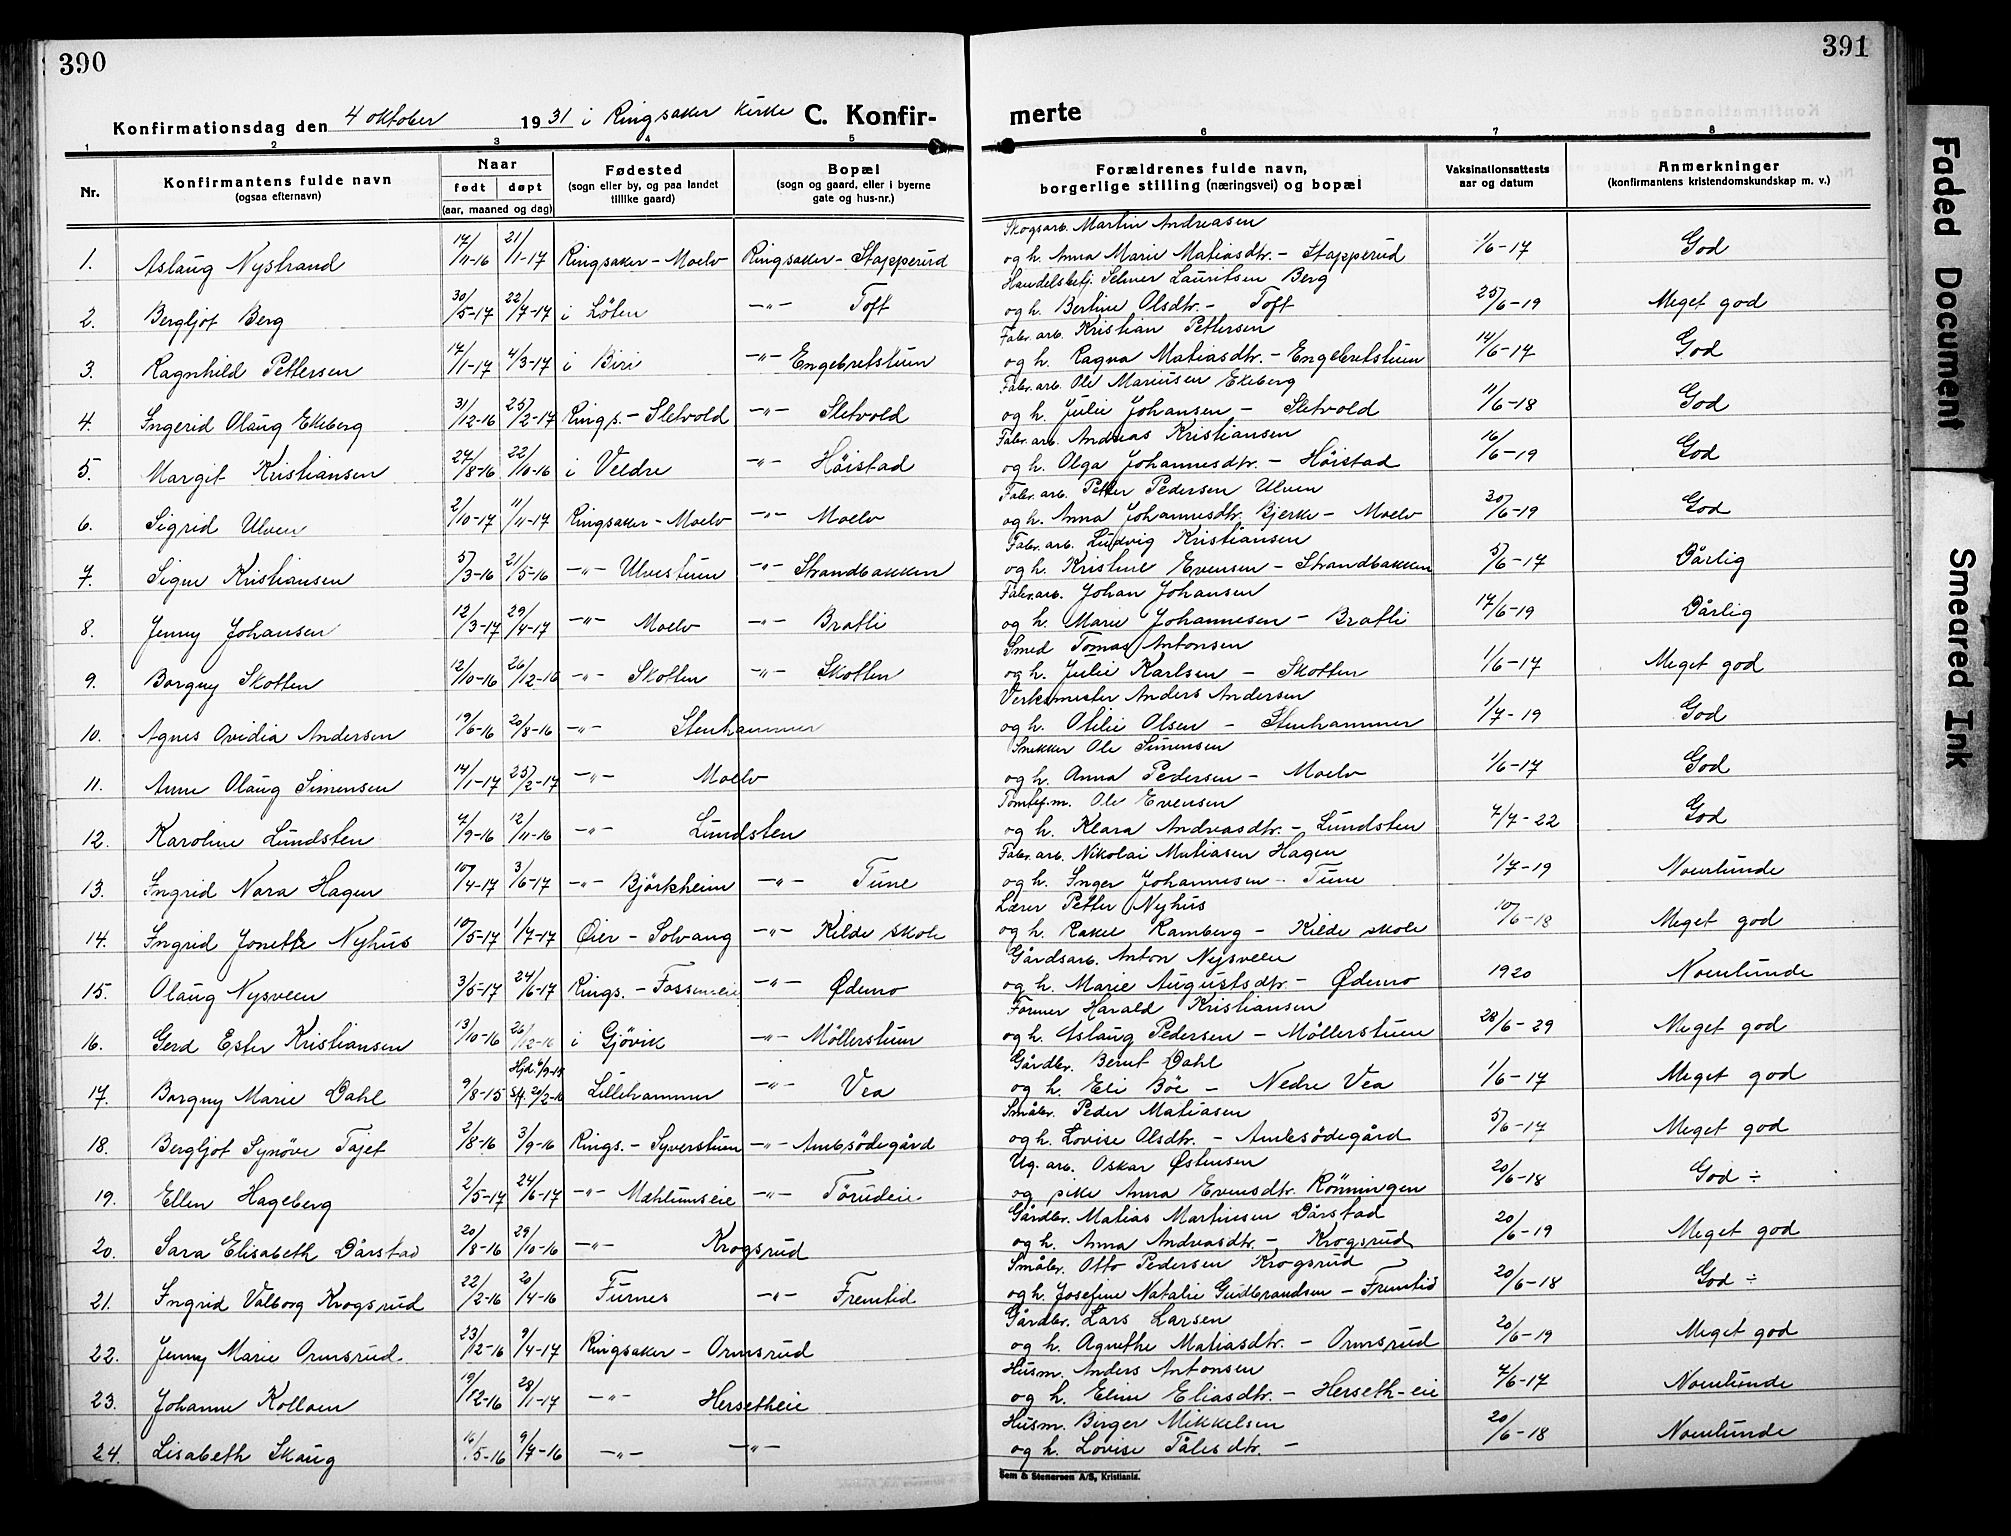 390
391
Konfirmationsdag den 4 oktober 1931 i Ringsaker Kirke C. Konfir-
merte
1 2 3 4 5 6 7 8
Nr. Konfirmantens fulde navn (ogsaa efternavn) Naar født døpt (aar, maaned og dag) Fødested (sogn eller by, og paa landet tillike gaard) Bopæl (sogn og gaard, eller i byerne gate og hus-nr.) Forældrenes fulde navn, borgerlige stilling (næringsvei) og bopæl Vaksinationsattests aar og datum Anmerkninger (konfirmantens kristendomskundskap m. v.)
Skogsarb. Martin Andreasen
1. Aslaug Nystrand 17/11-16 21/1-17 Ringsaker - Moelv Ringsaker - Stapperud og h. Anna Marie Matiasdtr. - Stapperud 1/6-17 God
Handelsbetj. Selmer Lauritsen Berg
2. Bergljot Berg 30/5-17 22/7-17 i Løten -"- Toft og h. Bertine Olsdtr. - Toft 25/6-19 Meget god
Fabr. arb. Kristian Pettersen
3. Ragnhild Pettersen 17/1-17 4/3-17 i Biri -"- Engebretstuen og h. Ragna Matiasdtr. - Engebretstuen 14/6-17 God
Fabr. arb. Ole Mariusen Ekeberg
4. Ingerid Olaug Ekeberg 31/12-16 25/2-17 Rings. - Sletvold -"- Sletvold og h. Julie Johansen - Sletvold 11/6-18 God
Fabr. arb. Andreas Kristiansen
5. Margit Kristiansen 27/8-16 22/10-16 i Veldre -"- Höistad og h. Olga Johannesdtr. - Höistad 16/6-19 God
Fabr. arb. Petter Pedersen Ulven
6. Sigrid Ulven 2/10-17 11/11-17 Ringsaker - Moelv -"- Moelv og h. Anna Johannesdtr. Bjerke - Moelv 30/6-19 God
Fabr. arb. Ludvig Kristiansen
7. Signe Kristiansen 5/3-16 21/5-16 -"- Ulvestuen -"- Strandbakken og h. Kristine Evensen - Strandbakken 5/6-17 Dårlig
Fabr. arb. Johan Johansen
8. Jenny Johansen 12/3-17 29/4-17 -"- Moelv -"- Bratli og h. Marie Johannesen - Bratli 17/6-19 Dårlig
Smed Tomas Antonsen
9. Borgny Skotten 12/10-16 26/12-16 -"- Skotten -"- Skotten og h. Julie Karlsen - Skotten 1/6-17 Meget god
Verksmester Anders Andersen
10. Agnes Ovidia Andersen 19/6-16 20/8-16 -"- Stenhammer og h. Otilie Olsen - Stenhammer 1/7-19 God
Snekker Ole Simensen
11. Anne Olaug Simensen 14/1-17 25/2-17 -"- Moelv og h. Anna Pedersen - Moelv 1/6-17 God
Tømtef.m. Ole Evensen
12. Karoline Lundsten 7/9-16 12/11-16 -"- Lundsten og h. Klara Andreasdtr. - Lundsten 7/7-22 God
Fabr. arb. Nikolai Matiasen Hagen
13. Ingrid Nora Hagen 10/4-17 3/6-17 -"- Björkheim -"- Tune og h. Inger Johannesen - Tune 1/7-19 Noenlunde
Lærer Petter Nyhus
14. Ingrid Jonette Nyhus 10/5-17 1/7-17 Øier - Solvang -"- Kilde skole og h. Rakel Ramberg - Kilde skole 10/6-18 Meget god
Gårdsarb. Anton Nysveen
15. Olaug Nysveen 3/5-17 24/6-17 Rings. - Fossen-eie -"- Ødemo og h. Marie Augustsdtr. - Ødemo 1920 Noenlunde
Former Harald Kristiansen
16. Gerd Ester Kristiansen 13/10-16 26/12-16 i Gjövik -"- Möllerstuen og h. Aslaug Pedersen - Möllerstuen 28/6-29 Meget god
Gårdbr. Bernt Dahl
17. Borgny Marie Dahl 9/8-15 Hjd. 6/9-15 St. 20/2-16 Lillehammer -"- Vea og h. Eli Böe - Nedre Vea 1/6-17 Meget god
Småbr. Peder Matiasen
18. Bergljot Synöve Tajet 2/8-16 3/9-16 Rings. - Syverstuen -"- Ambsödegård og h. Lovise Olsdtr. - Ambsödegård 5/6-17 Meget god
Ug. arb. Oskar Østensen
19. Ellen Hageberg 2/5-17 24/6-17 -"- Mæhlumseie -"- Törudeie og pike Anna Evensdtr. Rönningen 20/6-18 God ÷
Gårdbr. Matias Martinsen Dårstad
20. Sara Elisabeth Dårstad 20/8-16 29/10-16 -"- Krogsrud og h. Anna Andreasdtr. - Krogsrud 20/6-19 Meget god
Småbr. Otto Pedersen Krogsrud
21. Ingrid Valborg Krogsrud 22/2-16 20/4-16 Furnes -"- Fremtid og h. Josefine Natalie Gudbrandsen - Fremtid 20/6-18 God ÷
Gårdbr. Lars Larsen
22. Jenny Marie Ormsrud 23/12-16 9/4-17 Ringsaker - Ormsrud og h. Agnethe Matiasdtr. - Ormsrud 20/6-19 Meget god
Husm. Anders Antonsen
23. Johanne Kolloen 19/12-16 28/1-17 -"- Hersetheie og h. Eline Eliasdtr. - Herseth-eie 7/6-17 Noenlunde
Husm. Birger Mikkelsen
24. Lisabeth Skaug 16/5-16 9/7-16 -"- -"- og h. Lovise Tålesdtr. - 20/6-18 Noenlunde
Sem & Stenersen A/S, Kristiania.
Faded Document
Smeared Ink